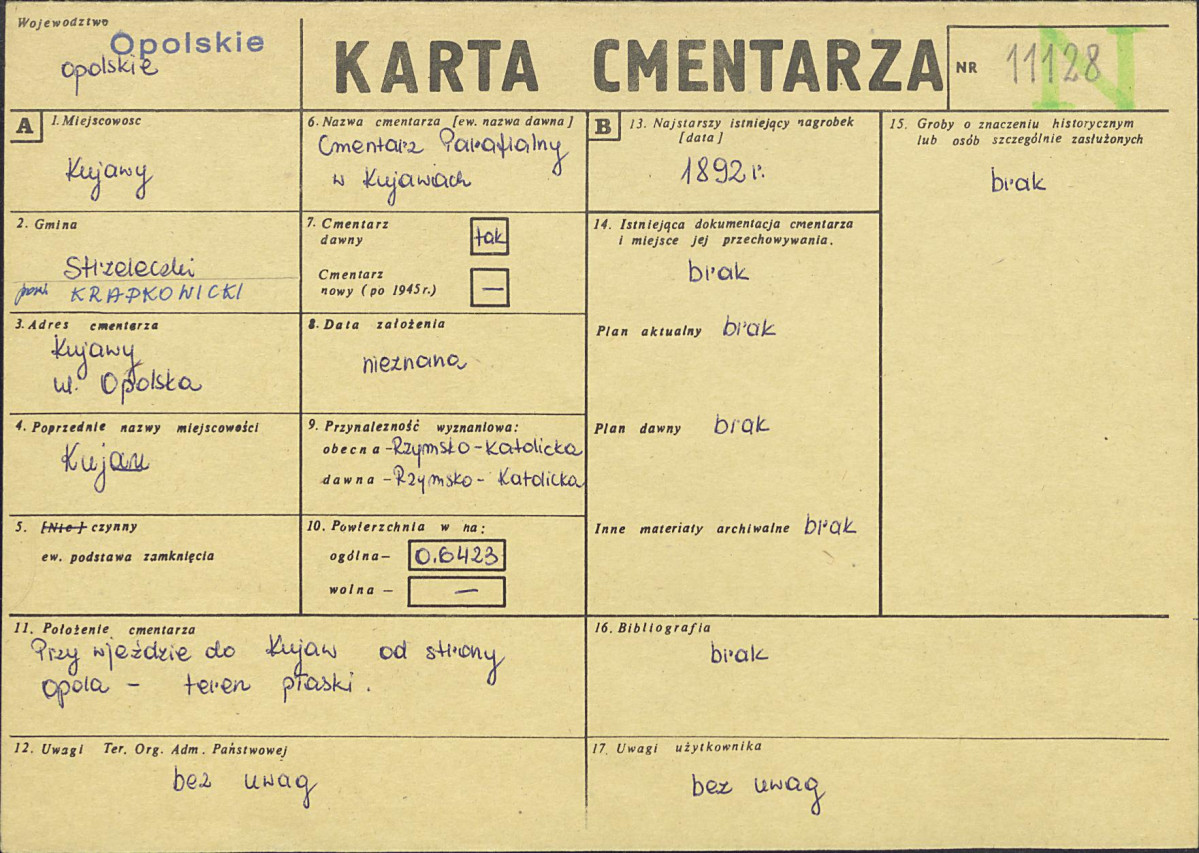 Wojewodztwo
Opolskie
opolskie
KARTA CMENTARZA
NR 11128
N
A
1. Miejscowosc
Kujawy
2. Gmina
Strzeleczki
KRAPKOWICKI
3. Adres cmentarza
Kujawy
ul. Opolska
4. Poprzednie nazwy miejscowości
Kujau
5. [Nie] czynny
ew. podstawa zamknięcia
6. Nazwa cmentarza [ew. nazwa dawna]
Cmentarz Parafialny
w Kujawach
7. Cmentarz
dawny tak
Cmentarz
nowy (po 1945 r.) —
8. Data założenia
nieznana
9. Przynależność wyznaniowa:
obecna - Rzymsko - Katolicka
dawna - Rzymsko - Katolicka
10. Powierzchnia w ha:
ogólna — 0.6423
wolna — —
11. Położenie cmentarza
Przy wjeździe do Kujaw od strony
Opola - teren płaski.
12. Uwagi Ter. Org. Adm. Państwowej
bez uwag
B
13. Najstarszy istniejący nagrobek
[data]
1892 r.
14. Istniejąca dokumentacja cmentarza
i miejsce jej przechowywania.
brak
Plan aktualny brak
Plan dawny brak
Inne materiały archiwalne brak
15. Groby o znaczeniu historycznym
lub osób szczególnie zasłużonych
brak
16. Bibliografia
brak
17. Uwagi użytkownika
bez uwag